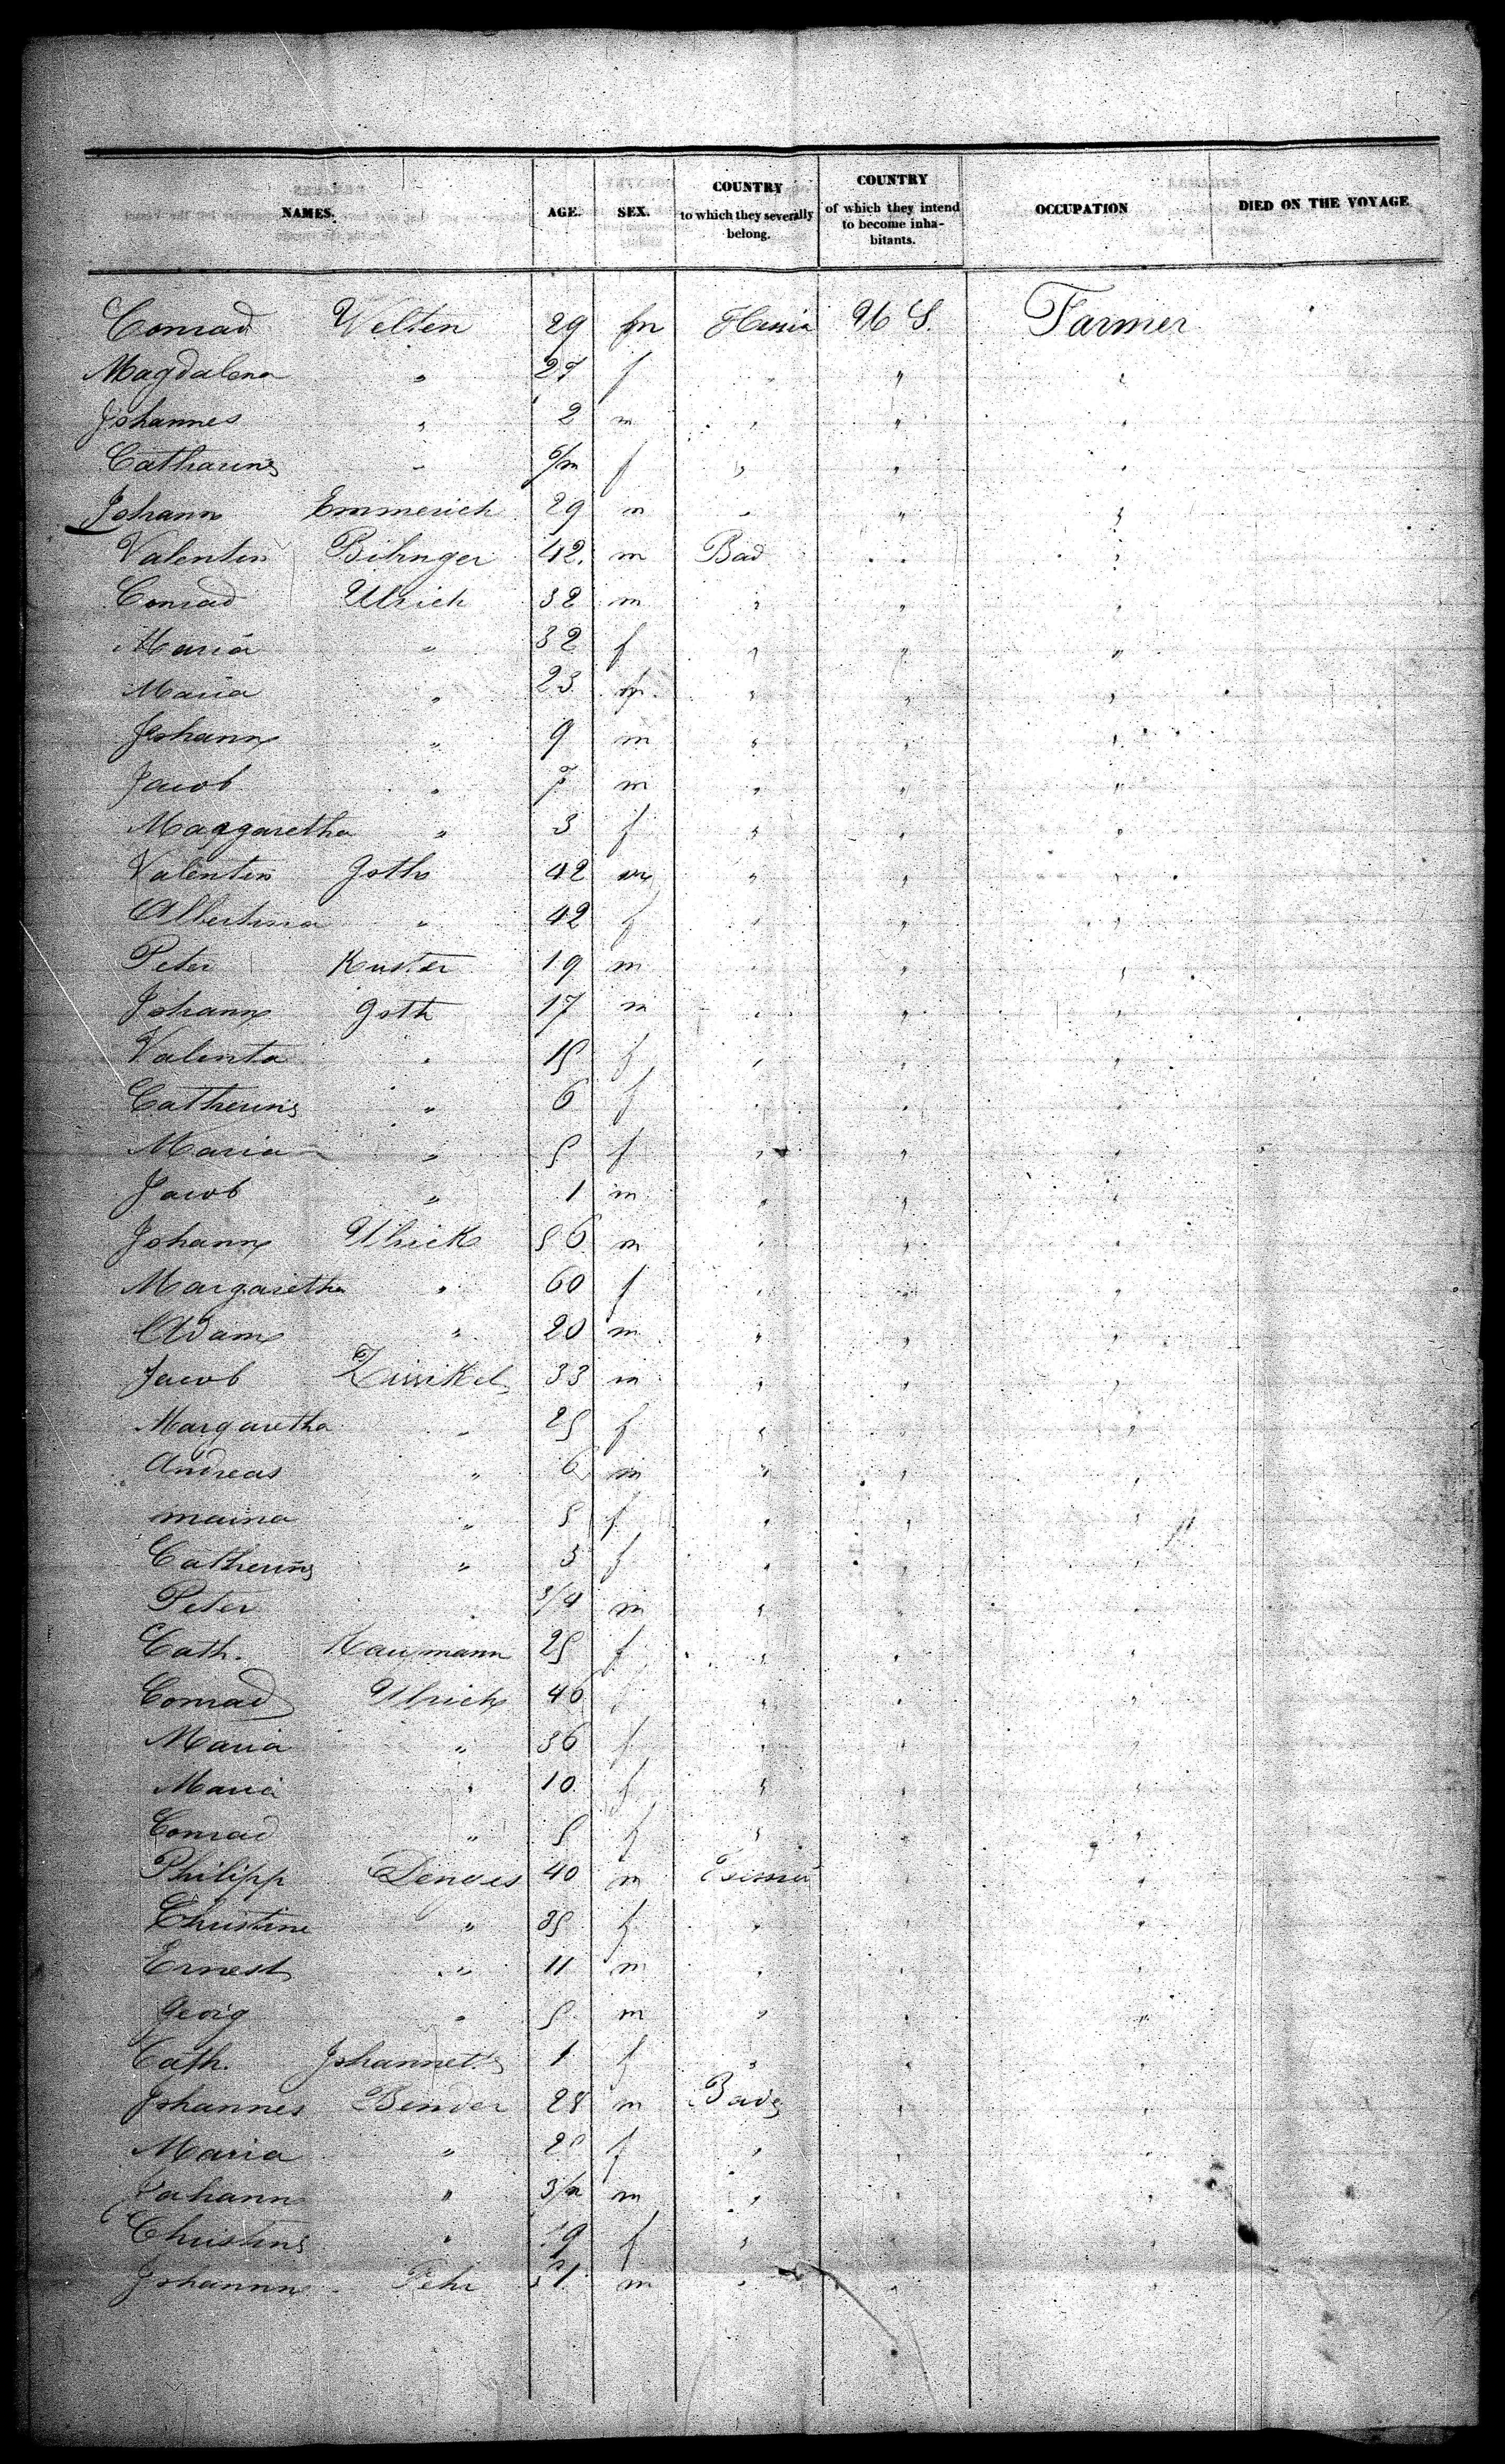 NAMES. AGE. SEX. COUNTRY to which they severally belong. COUNTRY of which they intend to become inhabitants. OCCUPATION DIED ON THE VOYAGE
Conrad Welten 29 m U S. Farmer
Magdalena " 27 f " "
Johannes " 2 m " " "
Catharine " 6/m f " " "
Johann Emmerich 29 m " " "
Valentin Bihnger 42. m Bad " "
Conrad Ulrich 32 m " " "
Maria " 32 f " " "
Maria " 23 " " "
Johann " 9 m " " "
Jacob " 7 m " " "
Maggaretha " 3 f " " "
Valentin Goth 42 m " " "
Albertina " 42 f " " "
Peter Kuster 19 m " " "
Johann Goth 17 m " " "
Valenta " 15 f " " "
Catherine " 6 f " " "
Maria " 5 f " " "
Jacob " 1 m " " "
Johann Ulrick 56 m " " "
Margaretha " 60 f " " "
Adam " 20 m " " "
Jacob 33 m " " "
Margaretha " 25 f " " "
Andreas " 6 m " " "
maina " 5 f " " "
Catherine " 3 f " " "
Peter 3/4 m " " "
Cath. Kaumann 25 f " " "
Conrad Ulrich 40 f " " "
Maria " 36 f " " "
Maria " 10 f " " "
Conrad " 5 f " " "
Philipp Denges 40 m " "
Christine " 35 f " " "
Ernest " 11 m " " "
Georg " 5 m " " "
Cath. Johannette 1 f " " "
Johannes Bender 28 m Bade " "
Maria " f " " "
Johann " 3/m m " " "
Christine " 19 f " " "
Johann Fehr m " "